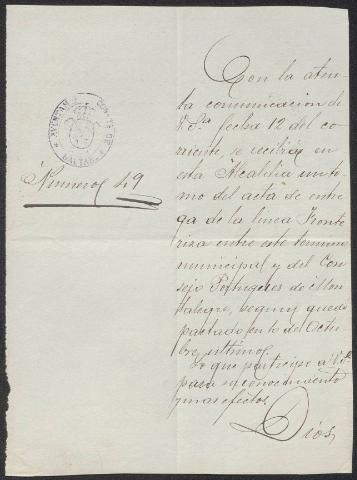 AYUNTAMIENTO CONST. DE
BALTAR
Numero 49
Con la aten-
ta comunicacion de
V. Sª fecha 12 del co-
rriente, se recibió en
esta Alcaldia un to-
mo del acta de entre-
ga de la linea Fronte-
riza entre este termino
municipal y del Con-
sejo Portugues de Mon-
talegre, segun quedo
pactado en 10 de Octu-
bre ultimo.
Lo que participo á V.S.
para su conocimiento
y mas efectos.
Dios,